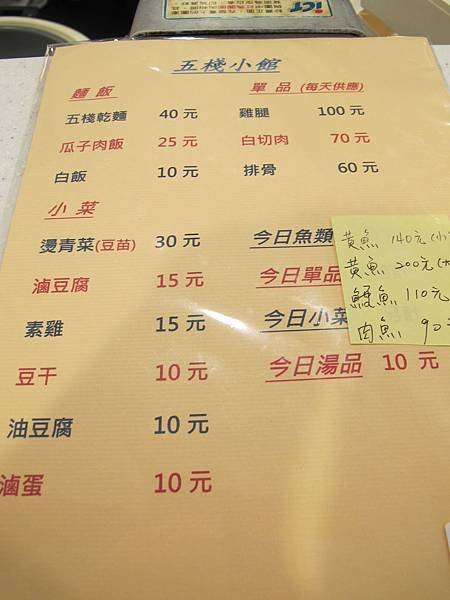 五棧小館
麵飯
五棧乾麵 40 元
瓜子肉飯 25 元
白飯 10 元
單品 (每天供應)
雞腿 100 元
白切肉 70 元
排骨 60 元
小菜
燙青菜(豆苗) 30 元
滷豆腐 15 元
素雞 15 元
豆干 10 元
油豆腐 10 元
滷蛋 10 元
今日魚類
今日單品
今日小菜
今日湯品 10 元
黃魚 140元(小
黃魚 200元(大
鱈魚 110元
肉魚 90元
ICT